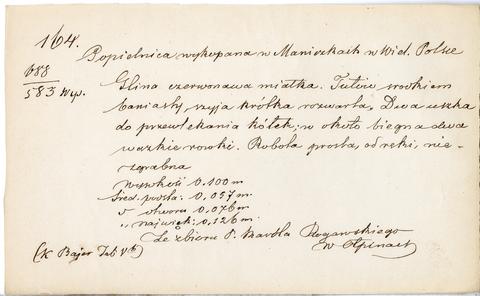 164.
Popielnica wykopana w Manieczkach w Wiel. Polsce
688
583 Wyk.
Glina czerwonawa miałka. Tułów środkiem
baniasty, szyja krótka rozwarta. Dwa uszka
do przewlekania kółek; w około biegną dwa
wązkie rowki. Robota prosta, od ręki, nie-
zgrabna
Wysokość 0.100 m
Śred. posła: 0.057 m.
" otworu 0.076 m
" najwięk: 0.126 m.
Ze zbioru P. Karola Rogawskiego
w Ołpinach
(K Bajer Tab V